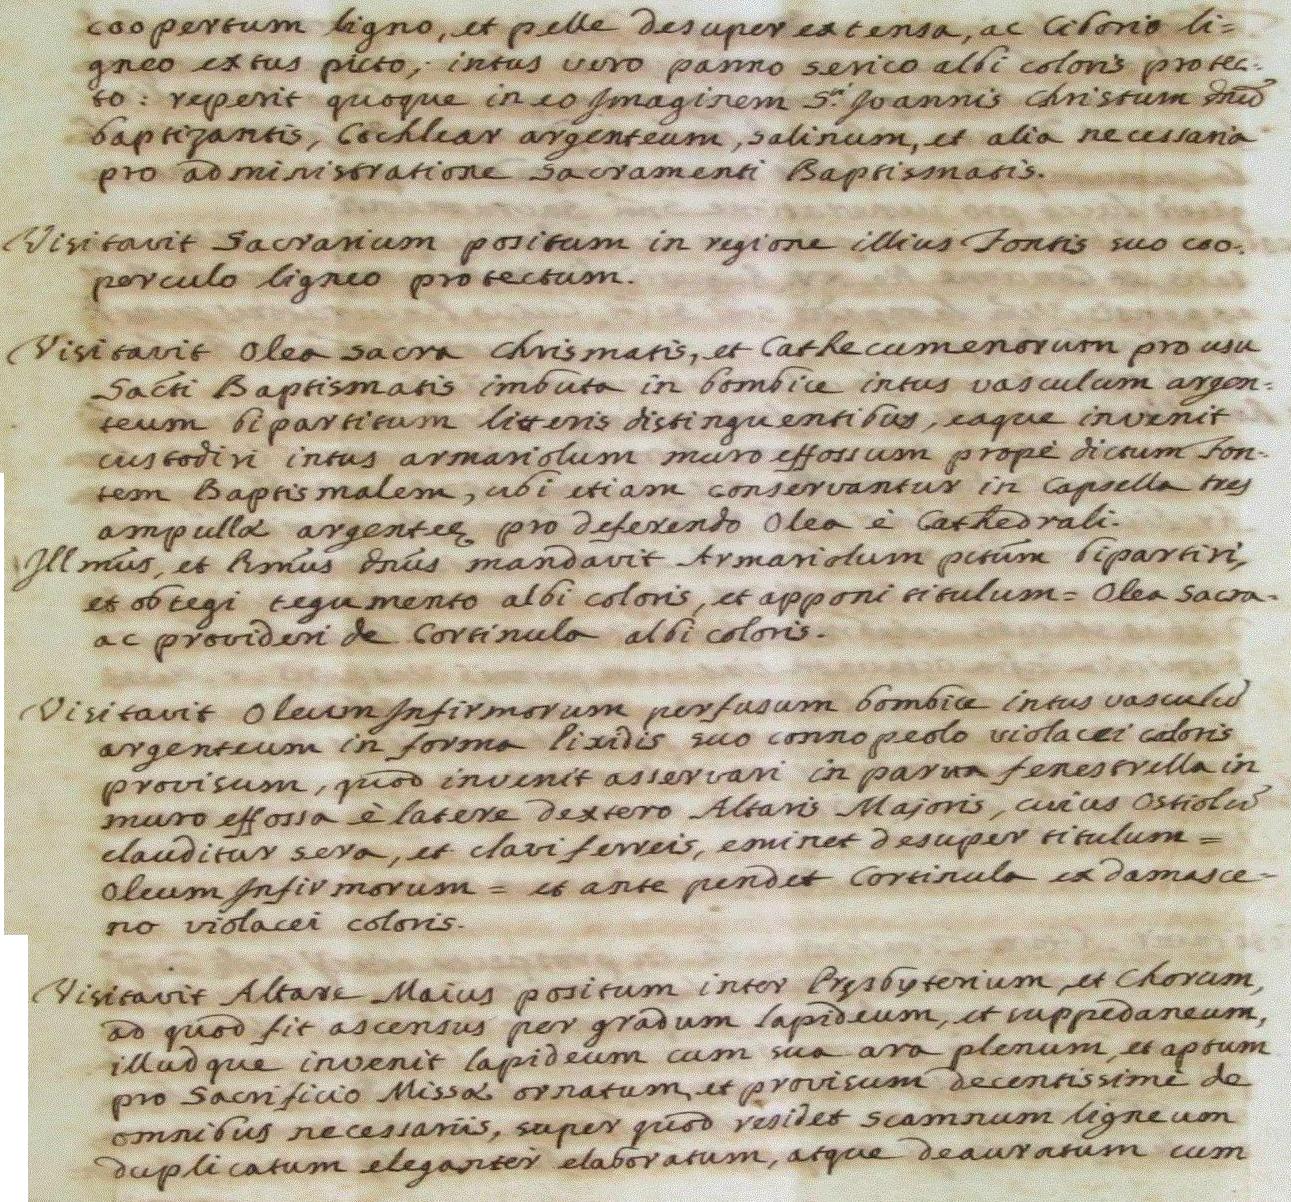 coopertum ligno, et pelle desuper extensa, ac Ciborio li=
gneo extus picto, intus vero panno serico albi coloris protec-
to: reperit quoque in eo Imaginem S.ti Joannis Christum dnũ
baptizantis, Cochlear argenteum, salinum, et alia necessaria
pro administratione Sacramenti Baptismatis.
Visitavit Sacrarium positum in regione illius Fontis suo coo-
perculo ligneo protectum.
Visitavit Olea sacra Chrismatis, et Cathecumenorum pro usu
Sacti Baptismatis imbuta in bombice intus vasculum argen=
teum bipartitum litteris distinguentibus, eaque invenit
custodiri intus armariolum muro effossum propè dictum Fon-
tem Baptismalem, ubi etiam conservantur in Capsella tres
ampullæ argenteę pro deferendo Olea è Cathedrali.
Illmus, et Rmus dnus mandavit Armariolum ptum bipartiri,
et obtegi tegumento albi coloris, et apponi titulum = Olea Sacra-
ac provideri de Cortinula albi coloris.
Visitavit Oleum Infirmorum perfusum bombice intus vasculũ
argenteum in forma Pixidis suo connopeolo violacei coloris
provisum, quod invenit asservari in parva fenestrella in
muro effossa è latere dextero Altaris Majoris, cuius Ostiolũ
clauditur sera, et clavi ferreis, eminet desuper titulum =
Oleum Infirmorum = et ante pendet Cortinula ex damasce-
no violacei coloris.
Visitavit Altare Maius positum inter Presbyterium, et Chorum,
ad quod fit ascensus per gradum lapideum, et suppedaneum,
illudque invenit lapideum cum sua ara plenum, et aptum
pro Sacrificio Missæ ornatum, et provisum decentissimè de
omnibus necessariis, super quod residet scamnum ligneum
duplicatum eleganter elaboratum, atque deauratum cum